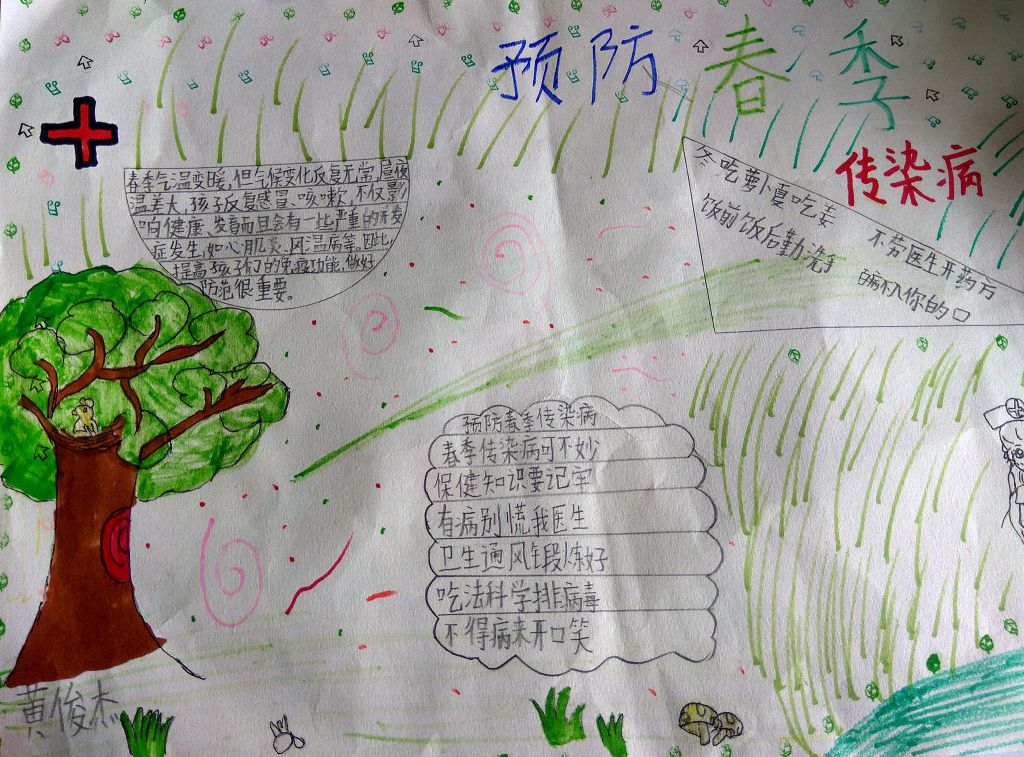 预防春季
传染病
春季气温变暖,但气候变化反复无常,昼夜
温差大,孩子反复感冒、咳嗽,不仅影
响健康、发育而且会有一些严重的并发
症发生,如心肌炎、风湿病等。因此,
提高孩子们的免疫功能,做好
防范很重要。
冬吃萝卜夏吃姜
不劳医生开药方
饭前饭后勤洗手
病不入你的口
预防春季传染病
春季传染病可不妙
保健知识要记牢
有病别慌找医生
卫生通风锻炼好
吃法科学排病毒
不得病来开口笑
黄俊杰